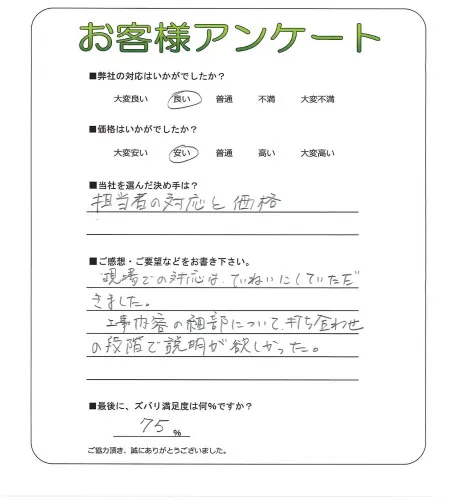 お客様アンケート
■弊社の対応はいかがでしたか？
大変良い 良い 普通 不満 大変不満
■価格はいかがでしたか？
大変安い 安い 普通 高い 大変高い
■当社を選んだ決め手は？
担当者の対応と価格
■ご感想・ご要望などをお書き下さい。
現場での対応は、ていねいにしていただ
きました。
工事内容の細部について、打ち合わせ
の段階で説明が欲しかった。
■最後に、ズバリ満足度は何%ですか？
75 %
ご協力頂き、誠にありがとうございました。